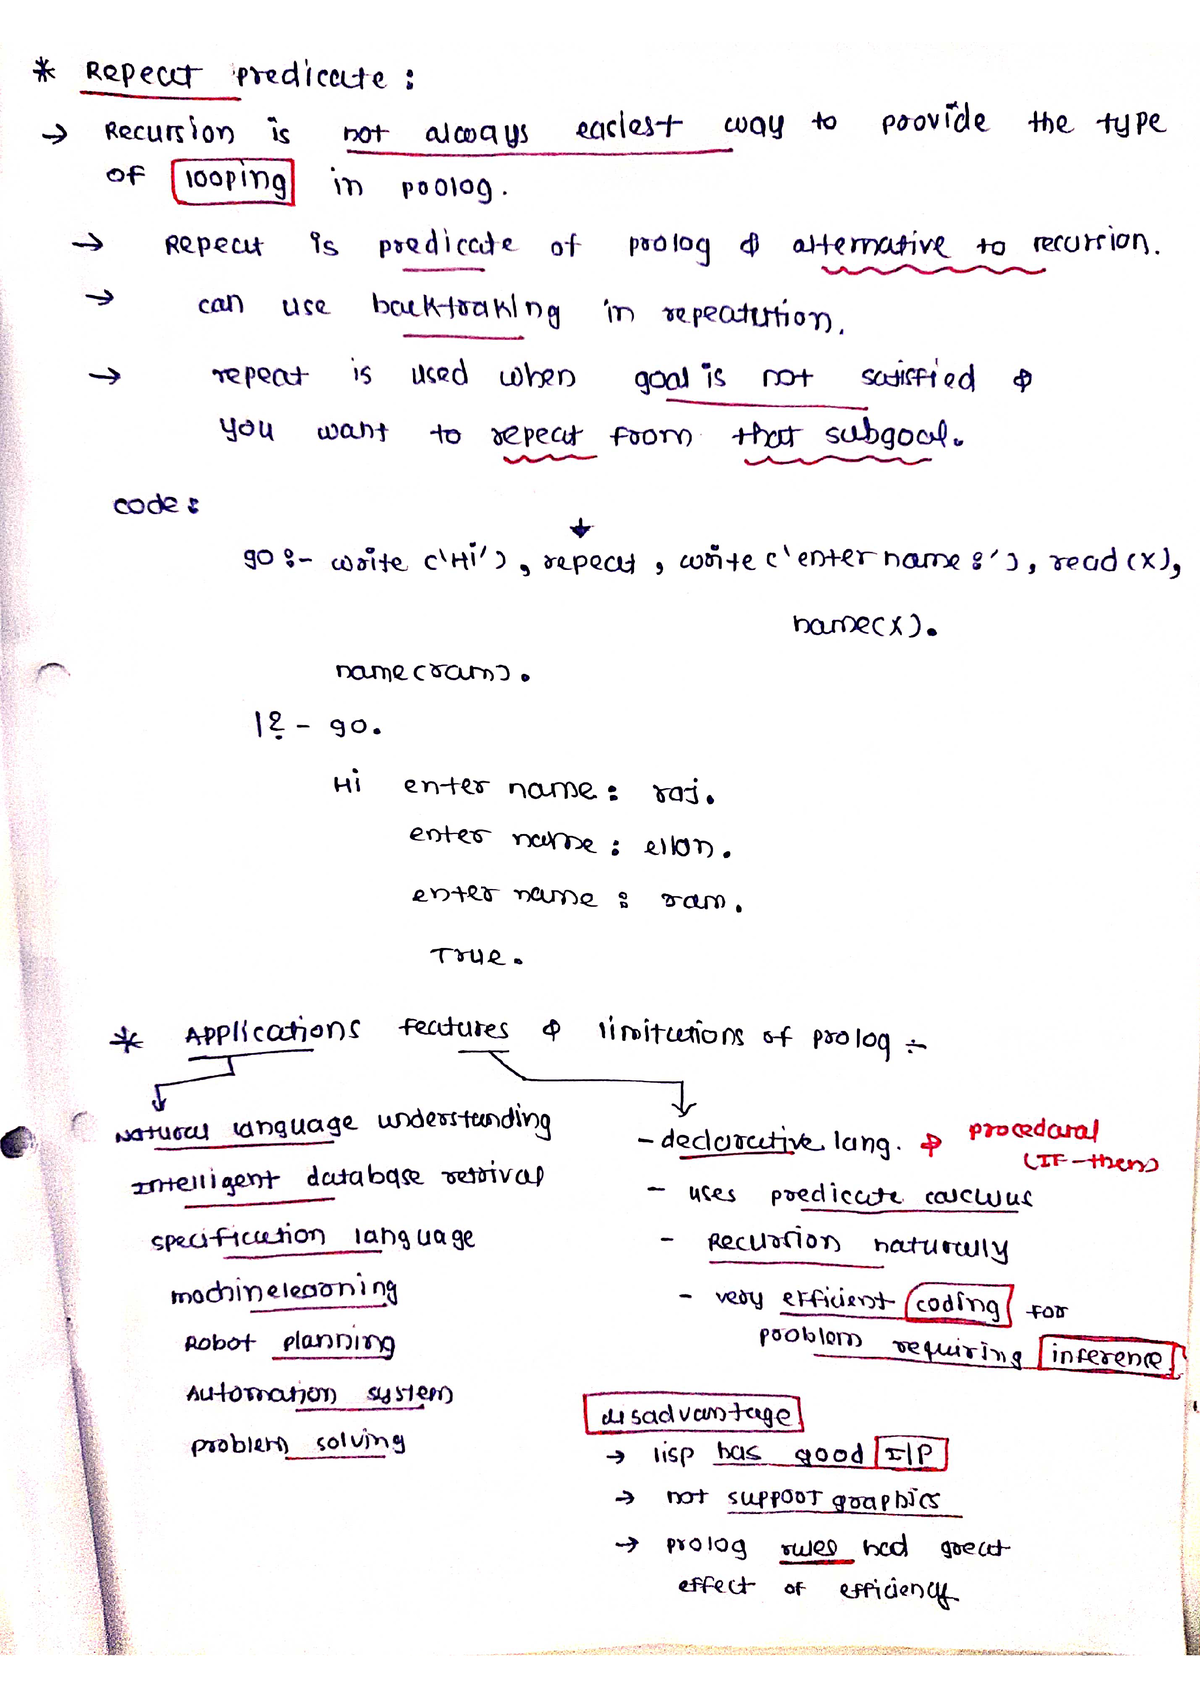 * Repeat predicate :
→ Recursion is not always eaciest way to provide the type
of looping in prolog.
→ Repeat is predicate of prolog & alternative to recursion.
→ can use backtraking in repeatition.
→ repeat is used when goal is not satisfied &
you want to repeat from that subgoal.
code :
go :- write ('Hi'), repeat, write ('enter name :'), read (x),
name(x).
name(ram).
|? - go.
Hi enter name : raj.
enter name : ellon.
enter name : ram.
True.
* Applications features & limitations of prolog :-
Natural language understanding
Intelligent database retrival
specification language
machine learning
Robot planning
Automation system
problem solving
- declarative lang. & procedaral
(IF-then)
- uses predicate calculus
- Recursion naturally
- very efficient coding for
problem requiring inference
disadvantage
→ lisp has good I/P
→ not support graphics
→ prolog rules had great
effect of efficiency